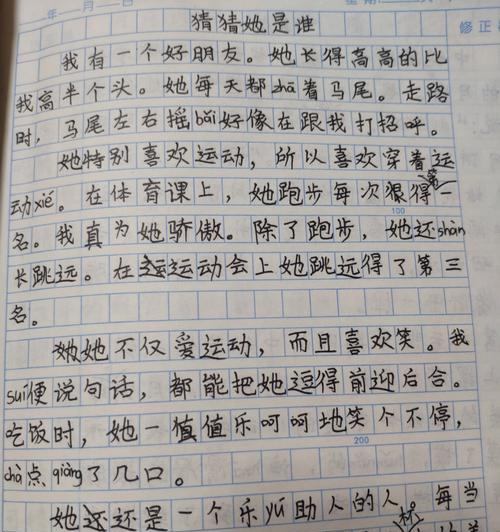 年 月 日 星期
修正
猜猜她是谁
我有一个好朋友。她长得高高的比
我高半个头。她每天都zhā着马尾。走路
时，马尾左右摇bǎi好像在跟我打招呼。
她特别喜欢运动，所以喜欢穿着运
动xié。在体育课上，她跑步每次狠得第一
100
名。我真为她骄傲。除了跑步，她还shàn
长跳远。在运运动会上她跳远得了第三
名。
她她不仅爱运动，而且喜欢笑。我
suí便说句话，都能把她逗得前迎后合。
吃饭时，她一值值乐呵呵地笑个不停，
200
chà点qiàng了几口。
她还还是一个乐yú助人的人。每当